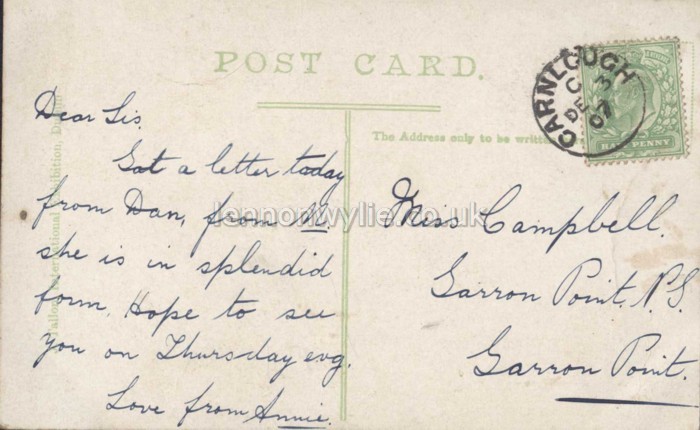 POST CARD.
The Address only to be writt
CARNLOUGH
C
DE 3
07
HALF PENNY
Dear Sis.
Got a letter today
from Dan, from N.
she is in splendid
form. Hope to see
you on Thursday evg.
Love from Annie.
Miss Campbell.
Garron Point. N.S.
Garron Point.
lennonwylie.co.uk
International Exhibition, Dublin